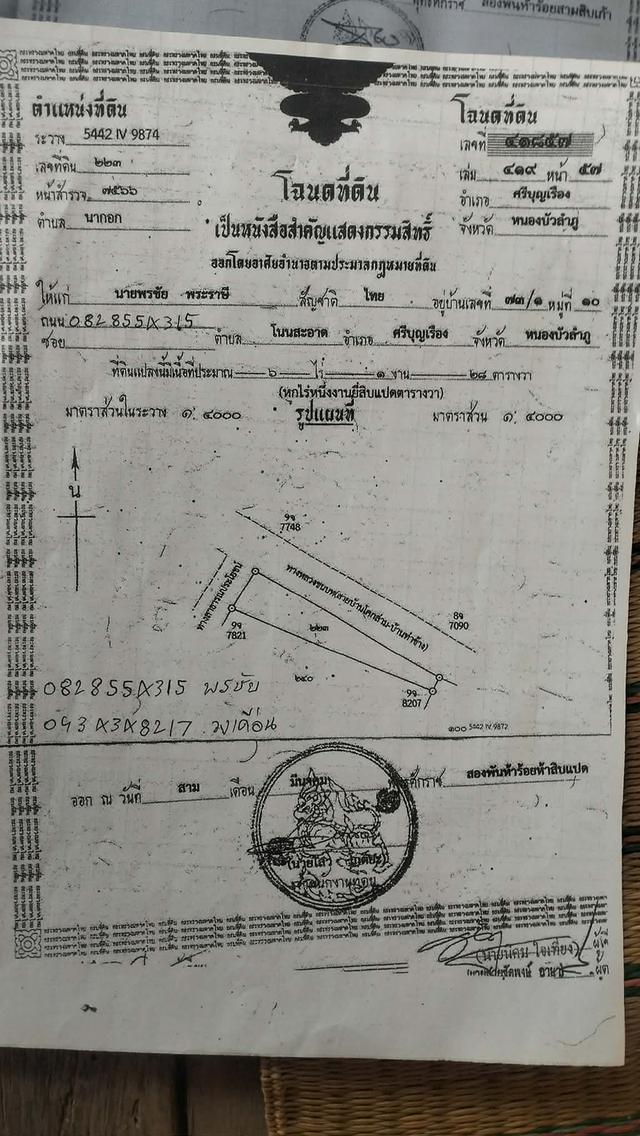 สองพันห้าร้อยสามสิบเก้า
ตำแหน่งที่ดิน
ระวาง 5442 IV 9874
เลขที่ดิน ๒๒๓
หน้าสำรวจ ๗๕๖๖
ตำบล นากอก
โฉนดที่ดิน
เลขที่ ๔๑๘๕๗
เล่ม ๔๑๙ หน้า ๕๗
อำเภอ ศรีบุญเรือง
จังหวัด หนองบัวลำภู
โฉนดที่ดิน
เป็นหนังสือสำคัญแสดงกรรมสิทธิ์
ออกโดยอาศัยอำนาจตามประมวลกฎหมายที่ดิน
ให้แก่ นายพรชัย พระราษี สัญชาติ ไทย อยู่บ้านเลขที่ ๗๓/๑ หมู่ที่ ๑๐
ถนน 082855
ซอย ตำบล โนนสะอาด อำเภอ ศรีบุญเรือง จังหวัด หนองบัวลำภู
ที่ดินแปลงนี้มีเนื้อที่ประมาณ ๖ ไร่ ๑ งาน ๒๘ ตารางวา
(หกไร่หนึ่งงานยี่สิบแปดตารางวา)
มาตราส่วนในระวาง ๑: ๔๐๐๐ รูปแผนที่ มาตราส่วน ๑: ๔๐๐๐
น
9จ
7748
ทางสาธารณประโยชน์
8จ
7090
9จ
7821
๒๒๓
๒๔๐
9จ
8207
๑๐๐ 5442 IV 9872
082855 พรชัย
043 8217 วงเดือน
ออก ณ วันที่ สาม เดือน มีนาคม สองพันห้าร้อยห้าสิบแปด
(นายนิคม ใจเที่ยง)